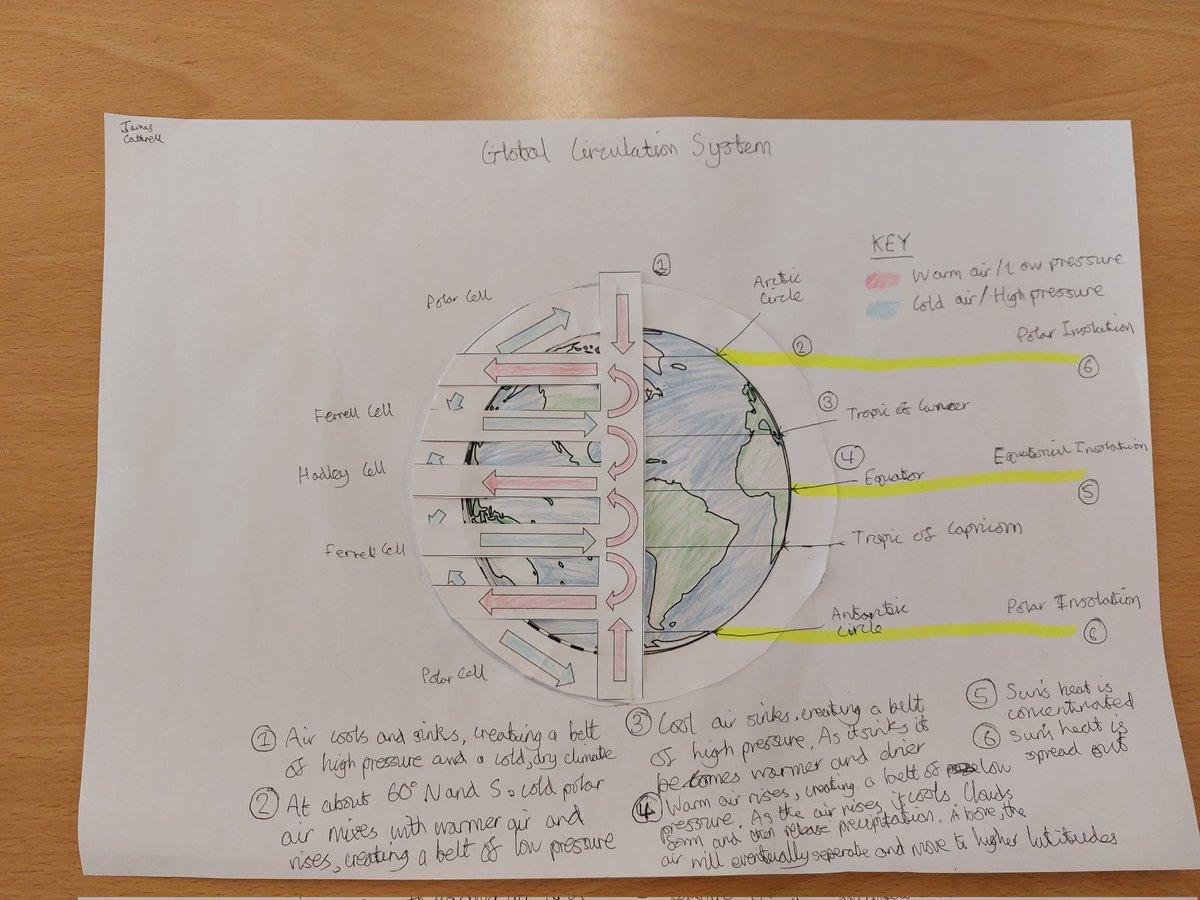 James
Cattrell
Global Circulation System
KEY
Warm air/Low pressure
Cold air/High pressure
①
Arctic
Circle
Polar Cell
②
Polar Insolution
⑥
Ferrell Cell
③
Tropic of Cancer
Hadley Cell
④
Equator
Equatorial Insolation
⑤
Ferrell Cell
Tropic of Capricorn
Antarctic
Circle
Polar Insolation
⑥
Polar Cell
① Air cools and sinks, creating a belt
of high pressure and a cold, dry climate
② At about 60° N and S. cold polar
air mixes with warmer air and
rises, creating a belt of low pressure
③ Cool air sinks, creating a belt
of high pressure. As it sinks it
becomes warmer and drier
④ Warm air rises, creating a belt of low
pressure. As the air rises, it cools. Clouds
form and then release precipitation. Above, the
air will eventually seperate and move to higher latitudes
⑤ Sun's heat is
concentrated
⑥ Sun's heat is
spread out